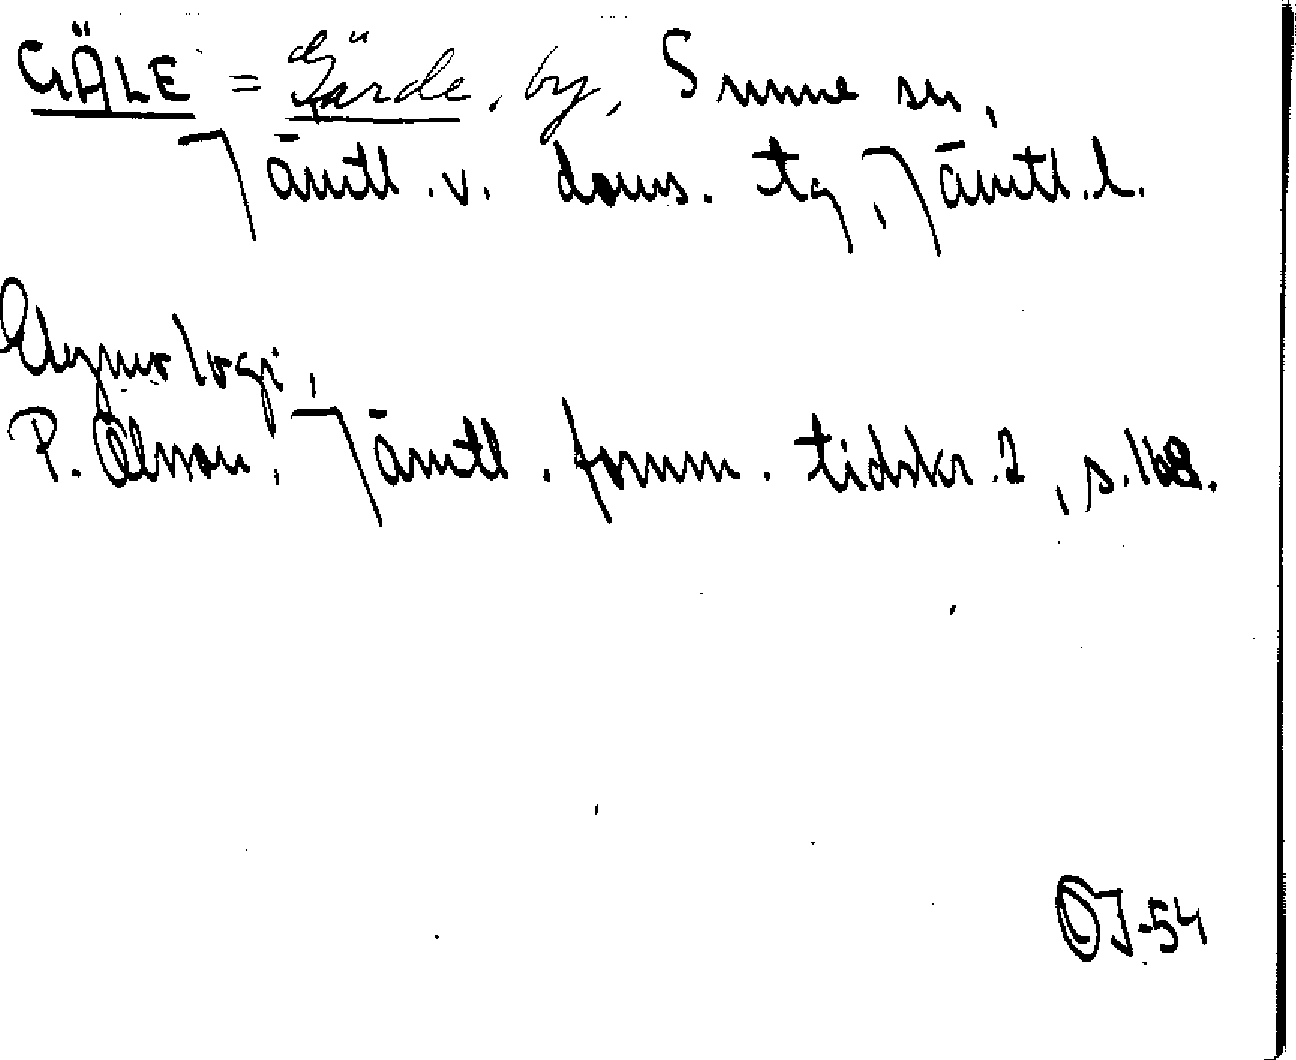 GÄLE = Gärde, by, Sunne sn,
Jämtl. v. doms. tg, Jämtl. l.
Etymologi,
P. Olsson, Jämtl. fornm. tidskr. 2, s. 168.
OJ-54